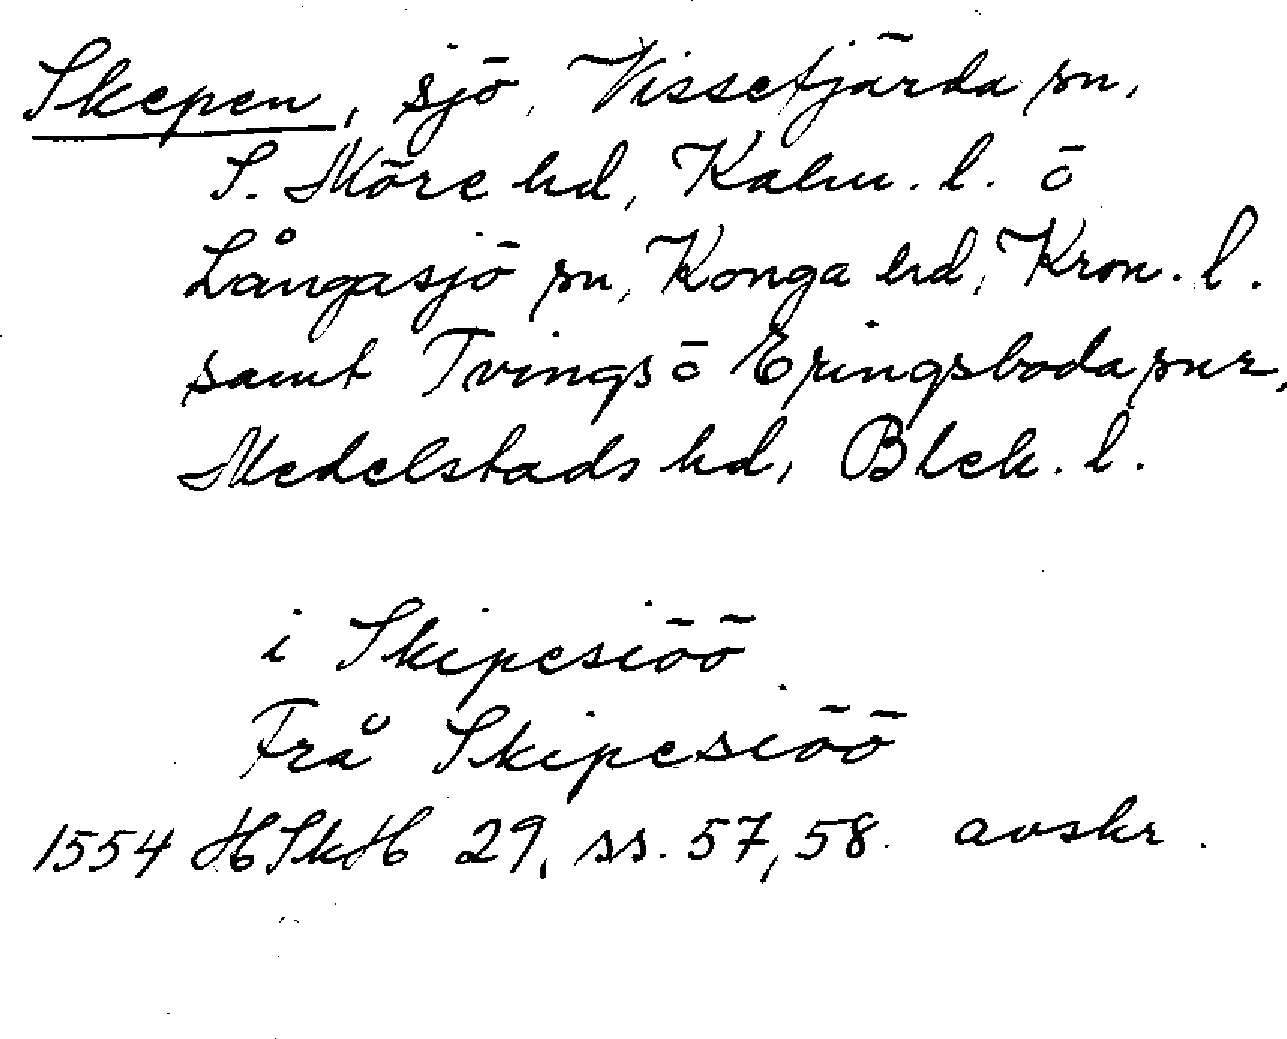 Skepen, sjö, Vissefjärda sn,
S. Möre hd, Kalm. l. ö
Långasjö sn, Konga hd, Kron. l.
samt Tvings ö Eringsboda snr,
Medelstads hd, Blek. l.
i Skipesiöö
Frå Skipesiöö
1554 HSkH 29, ss. 57, 58. avskr.